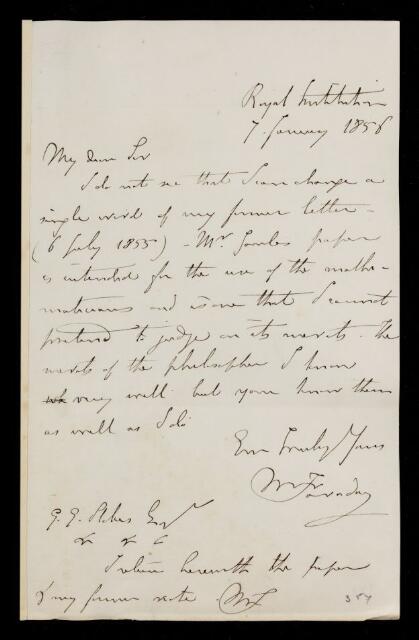 Royal Institution
7 January 1856
My dear Sir
I do not see that I can change a
single word of my former letter -
(6 July 1855) - Mr Joules paper
is intended for the use of the mathe-
maticians and is one that I cannot
pretend to judge on its merits. The
merits of the philosopher I know
very well but you know them
as well as I do
Ever Truly Yours
M Faraday
G. G. Stokes Esqr
&c &c &c
I return herewith the paper
& my former note MF
354